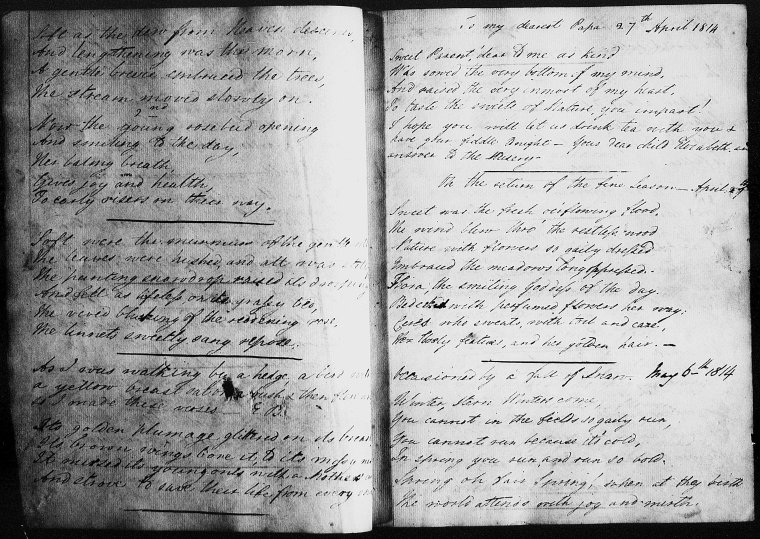 Soft as the dew from Heaven descends,
And lengthening was the morn,
A gentle breeze embraced the trees,
The stream moved slowly on.
2nd
Now the young rosebud opening
And smiling to the day,
Her balmy breath
Gives joy and health
To early risers on their way.
Soft were the murmurs of the
The leaves were hushed and all was
The snowdrop raised its
And fell as on its grassy bed,
The vivid blushing of the reddening rose,
The linnets sweetly sang repose.
As I was walking by a hedge, a bird
a yellow breast into a bush & then
I made these verses E B
Its golden plumage glittered on its breast
Its brown wings bore it to its
It nursed its young ones with a Mother's
And strove to save their life from every
To my dearest Papa 27th April 1814
Sweet Parent, dear to me as kind
Who sowed the very bottom of my mind,
And raised the very inmost of my heart,
To taste the sweets of Nature, you impart!
I hope you will let us drink tea with you &
have tonight — your dear child Elizabeth in
answer to the
On the return of the fine Season — April
Sweet was the fresh overflowing flood,
The wind blew thro the restless wood
Nature with flowers so gaily dressed
Embraced the meadows
Flora, the smiling goddess of the day
with perfumed flowers her way;
Ceres who sweats, with toil and care,
Her lovely features, and her golden hair. —
Occasioned by a fall of Snow. May 6th 1814
Winter, stern Winter come,
You cannot in the fields so gaily run,
You cannot run because its cold,
In spring you run, and run so bold.
Spring oh fair Spring, when at thy birth
The world attends with joy and mirth.